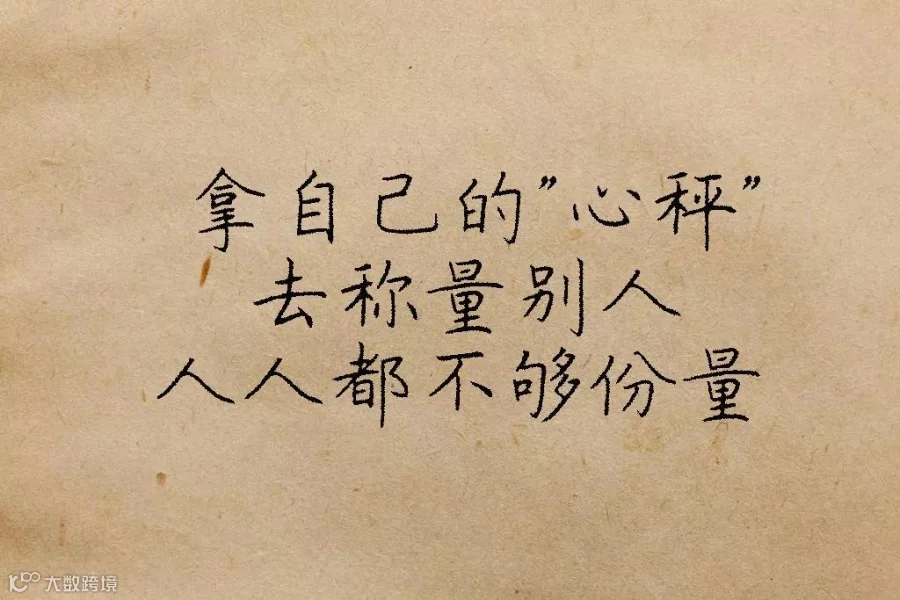 拿自己的”心秤”
去称量别人
人人都不够份量
大数跨境